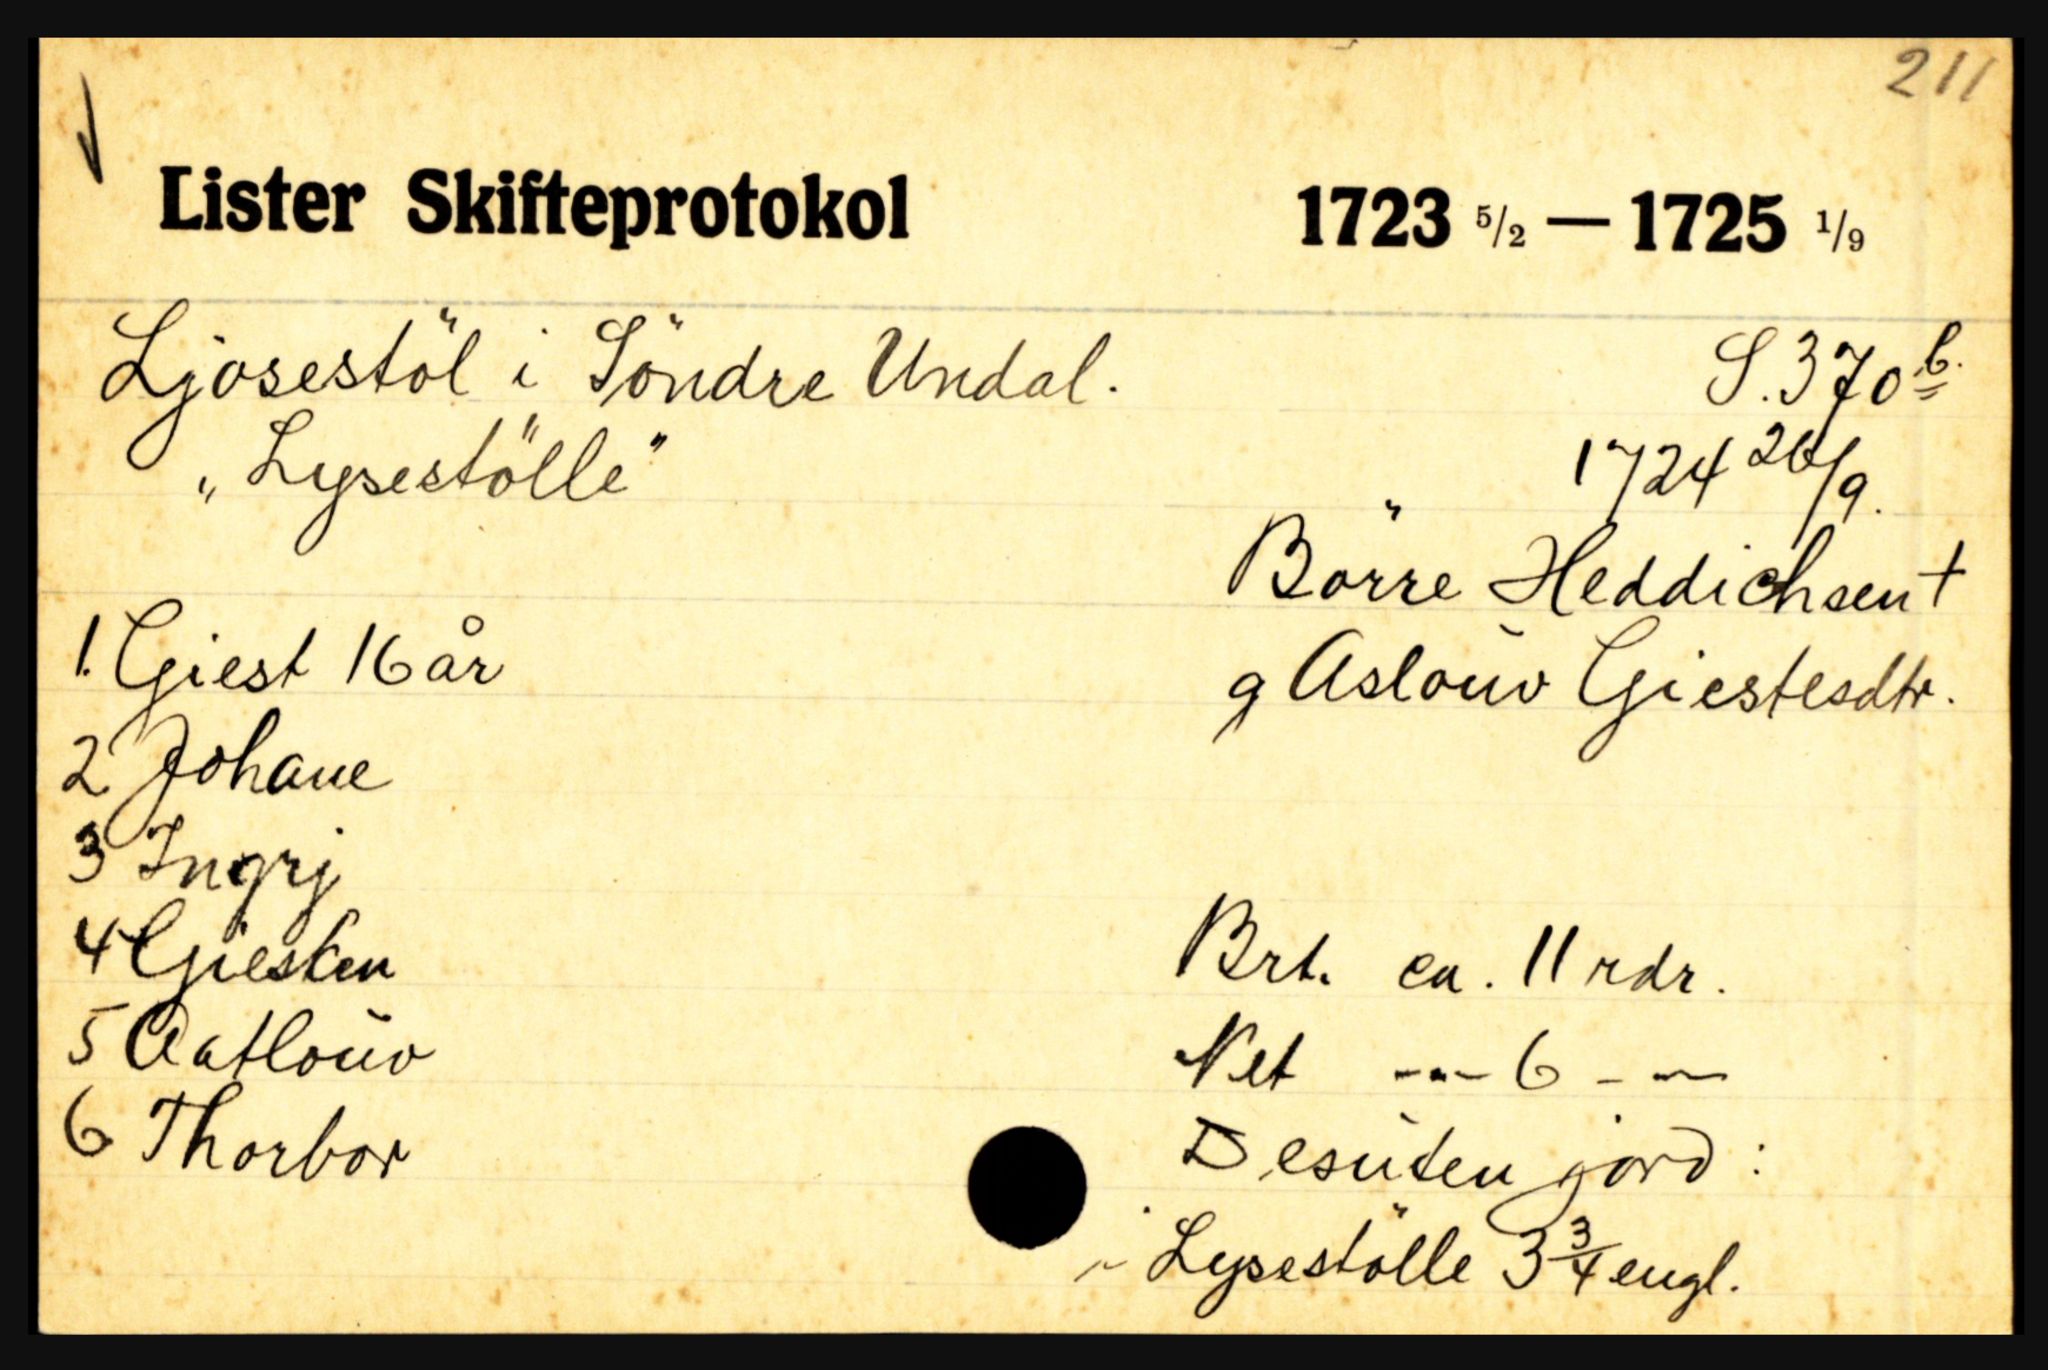 211
Lister Skifteprotokol 1723 5/2 — 1725 1/9
Ljosestöl i Söndre Undal. S. 370 b.
„Lysestölle" 1724 26/9.
Börre Heddichsen †
g Aslouv Giestesdtr.
1. Giest 16 år
2 Johane
3 Ingrj
4 Giesken
5 Aatlouv
6 Thorbor
Brt. ca. 11 rdr.
Net --- 6 - —
Desuten jord:
i Lysestölle 3 3/4 engl.